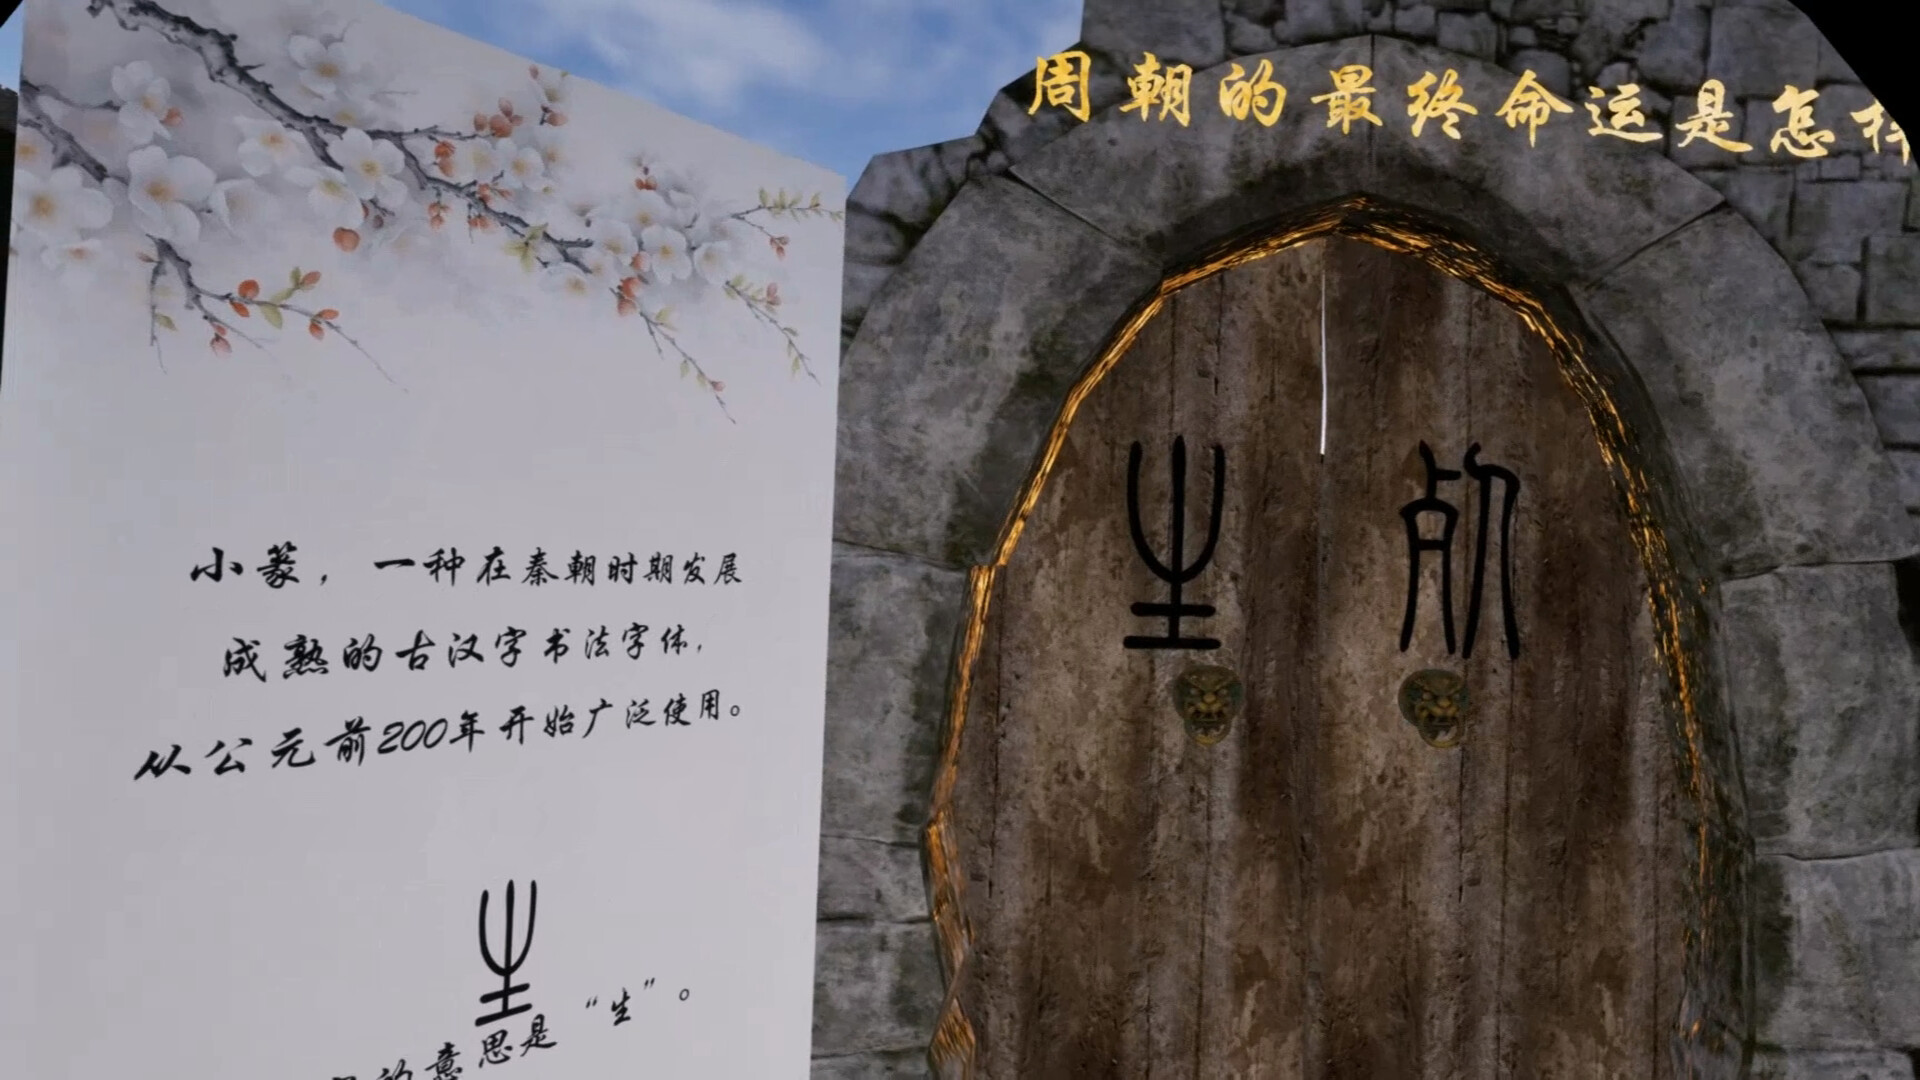 小篆，一种在秦朝时期发展
成熟的古汉字书法字体，
从公元前200年开始广泛使用。
生
的意思是“生”。
周朝的最终命运是怎样
生 死